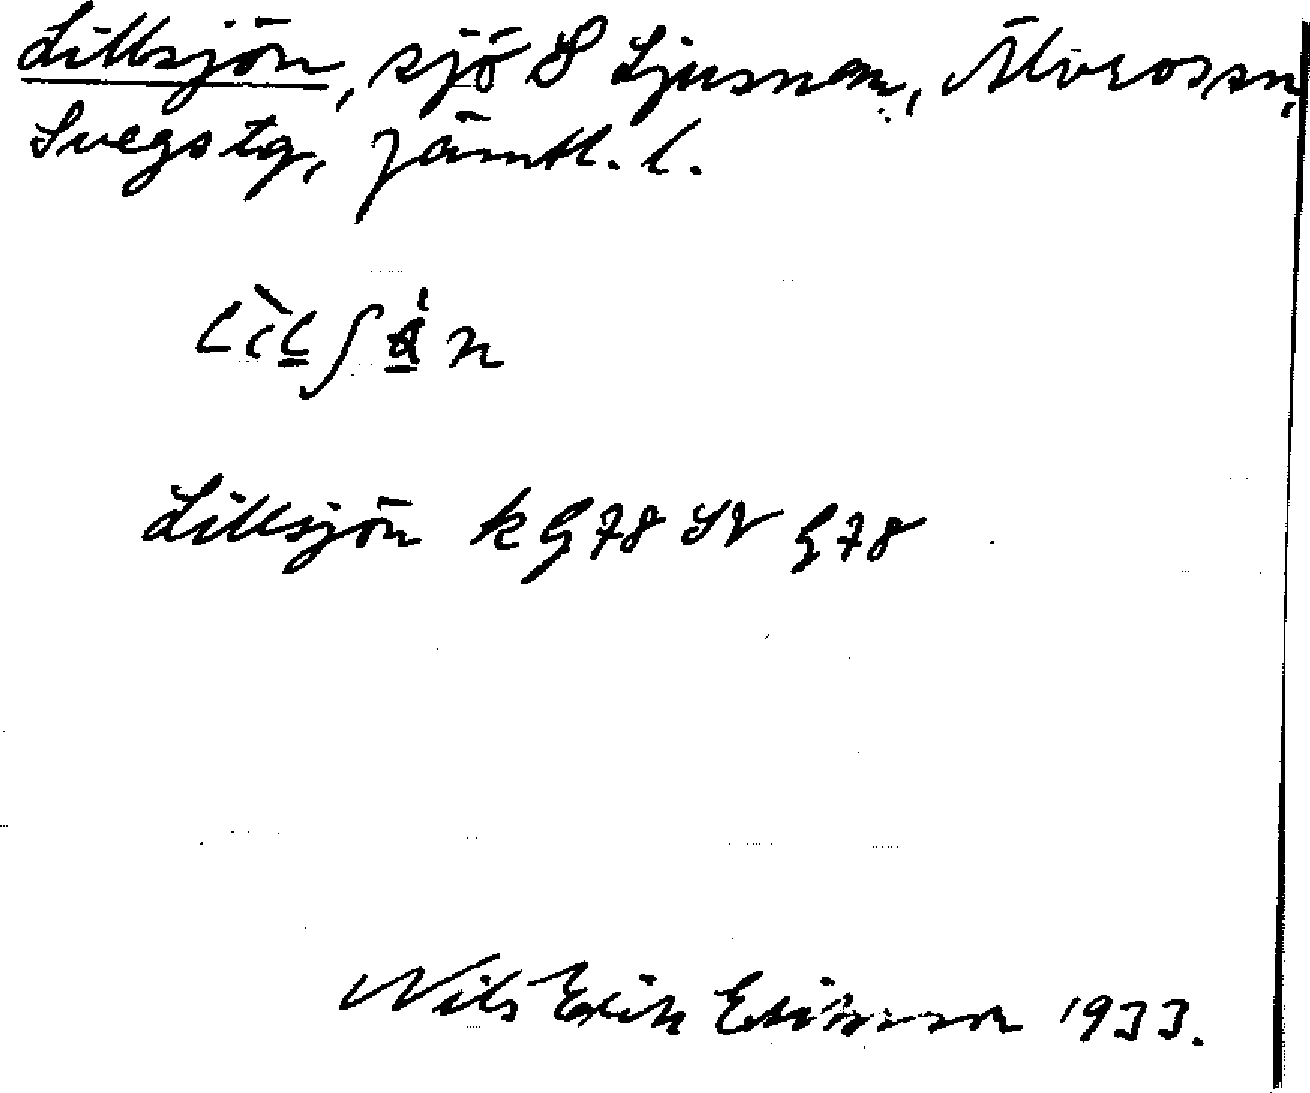 Lillsjön, sjö S Ljusnan, Älvros sn,
Svegs tg, Jämtl. l.
Lillsjön k G78 SV G78
Nils Erik Eriksson 1933.